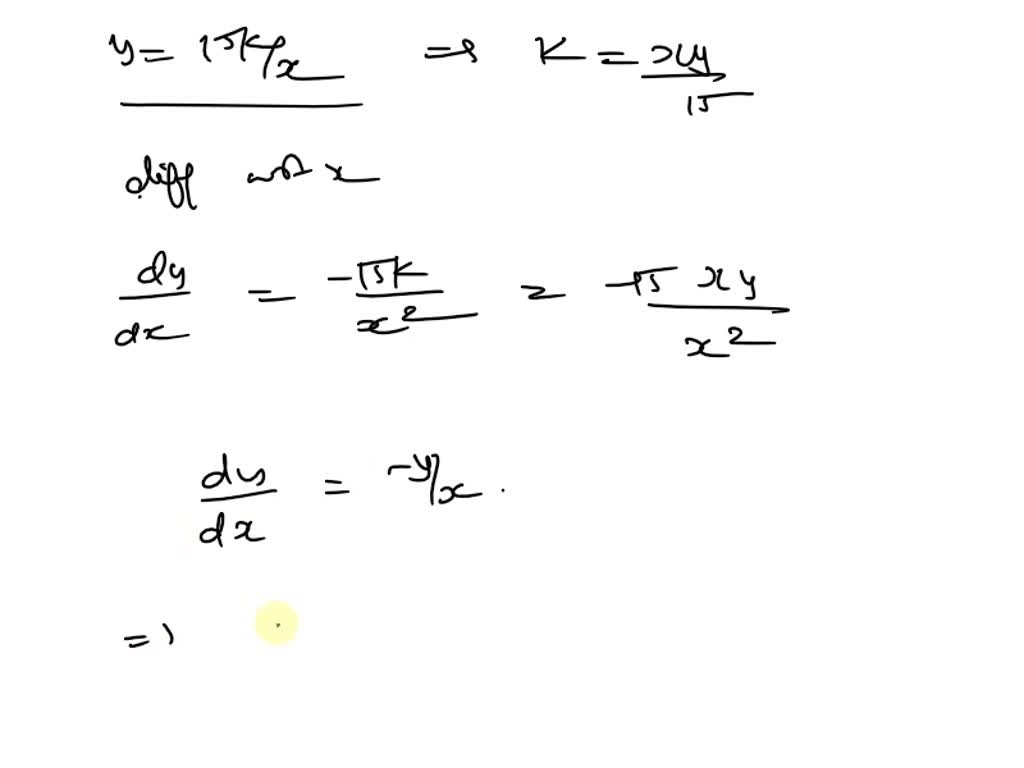 y = 15K/x ⇒ K = xy/15
diff wrt x
dy/dx = -15K/x² = -15 xy/x²
dy/dx = -y/x .
=)